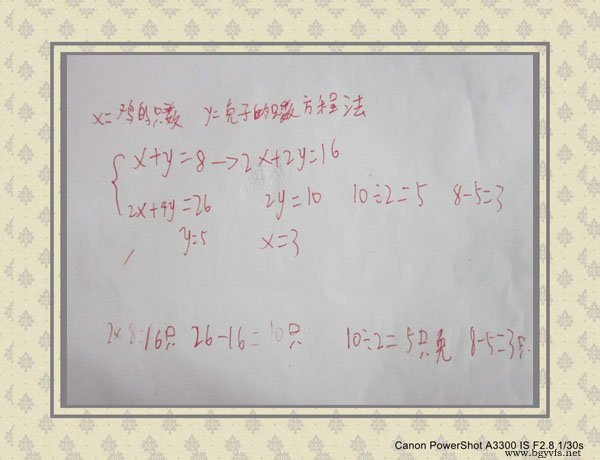 x=鸡的只数 y=兔子的只数方程法
x+y=8→2x+2y=16
2x+4y=26 2y=10 10÷2=5 8-5=3
y=5 x=3
2×8=16只 26-16=10只 10÷2=5只兔 8-5=3只
Canon PowerShot A3300 IS F2.8,1/30s
www.bgyvfs.net